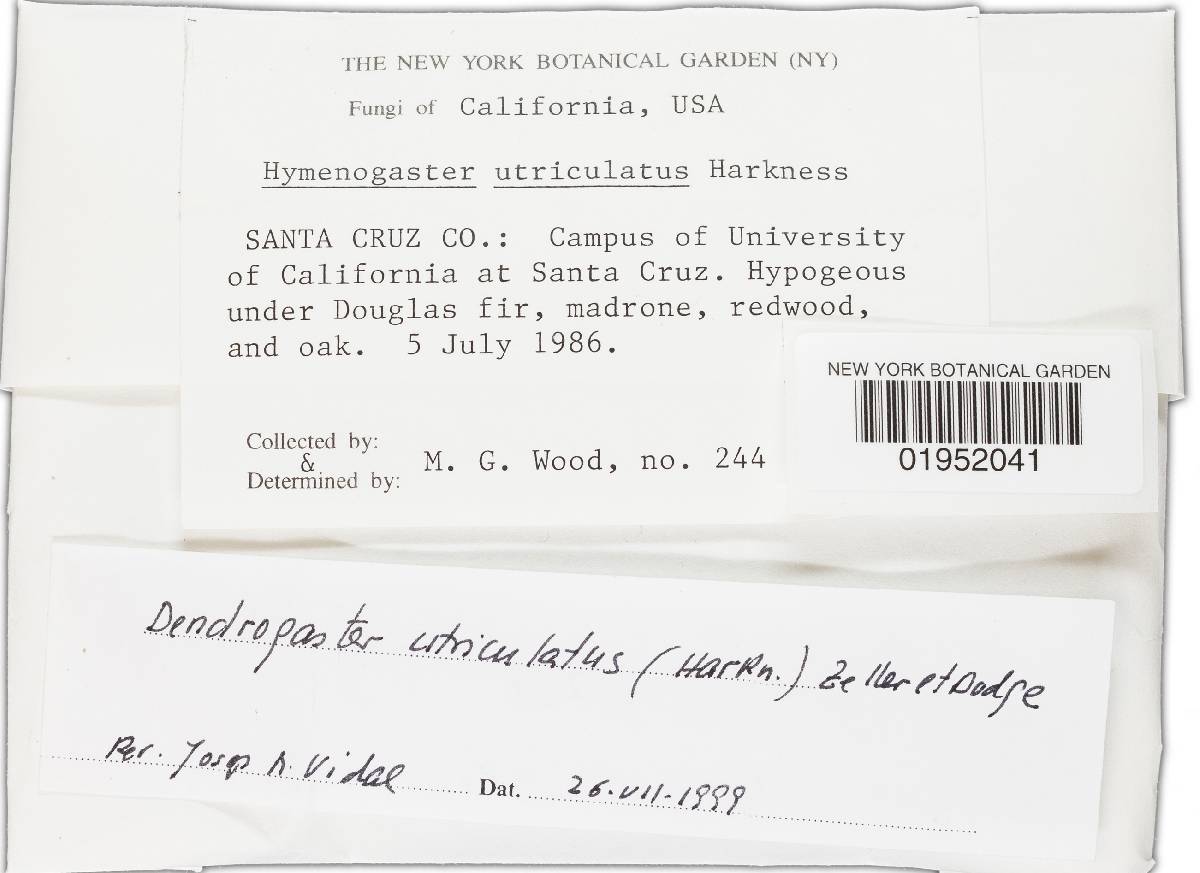 THE NEW YORK BOTANICAL GARDEN (NY)
Fungi of California, USA
Hymenogaster utriculatus Harkness
SANTA CRUZ CO.: Campus of University
of California at Santa Cruz. Hypogeous
under Douglas fir, madrone, redwood,
and oak. 5 July 1986.
NEW YORK BOTANICAL GARDEN
01952041
Collected by:
&
Determined by:
M. G. Wood, no. 244
Dendrogaster utriculatus (Harkn.) Zeller et Dodge
Rev. Josep M. Vidal Dat. 26-VII-1999